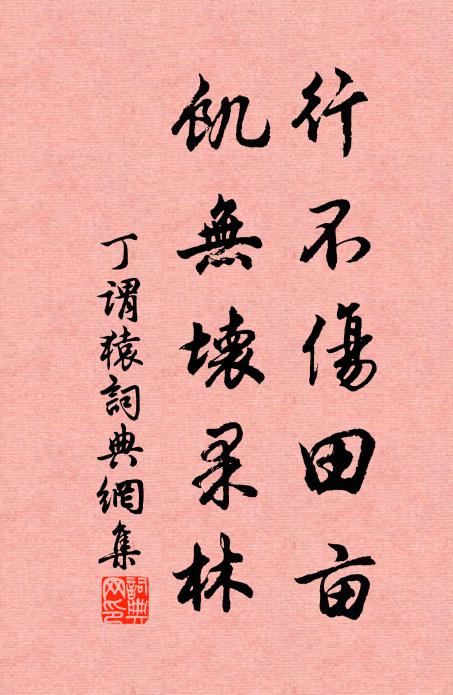 行不傷田亩
飢無壞果林
丁謂猿詞典網集
詞典网印